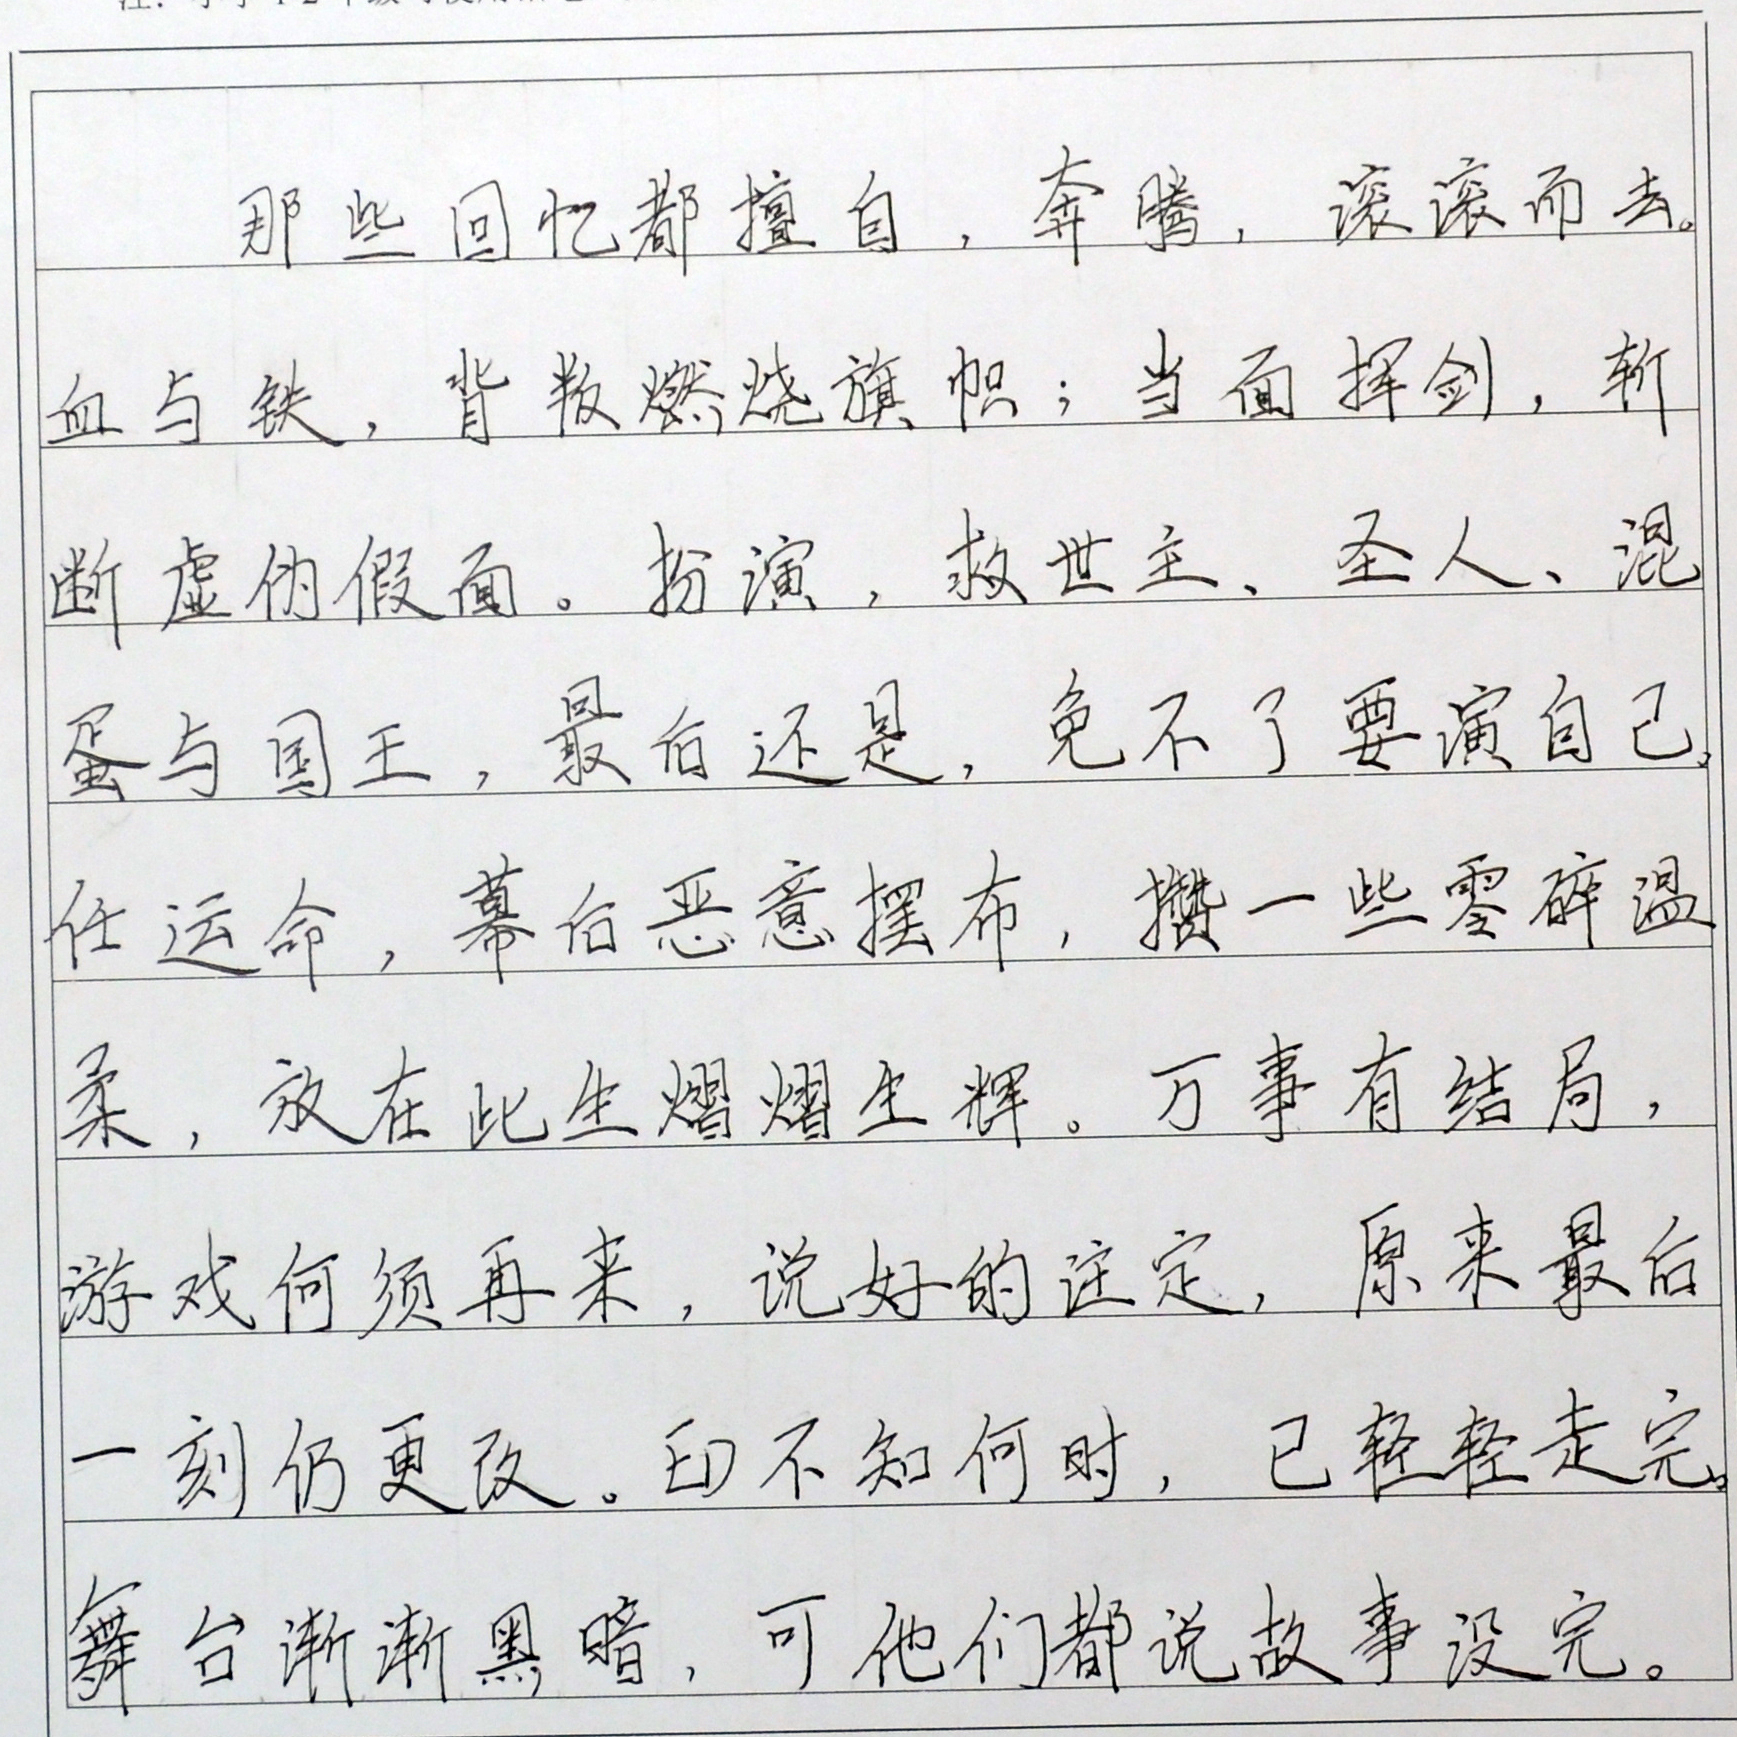 那些回忆都擅自，奔腾，滚滚而去。
血与铁，背叛燃烧旗帜；当面挥剑，斩
断虚伪假面。扮演，救世主、圣人、混
蛋与国王，最后还是，免不了要演自己，
任运命，幕后恶意摆布，攒一些零碎温
柔，放在此生熠熠生辉。万事有结局，
游戏何须再来，说好的注定，原来最后
一刻仍更改。却不知何时，已轻轻走完。
舞台渐渐黑暗，可他们都说故事没完。